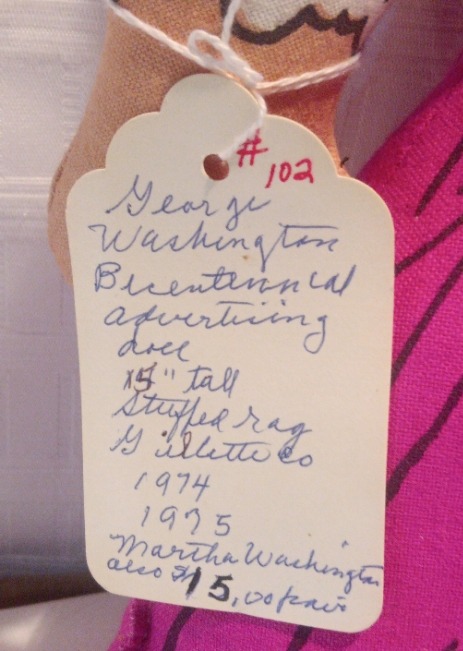 # 102
George
Washington
Bicentennial
advertising
doll
15" tall
Stuffed rag
Gillette co
1974
1975
Martha Washington
also $15.00 pair